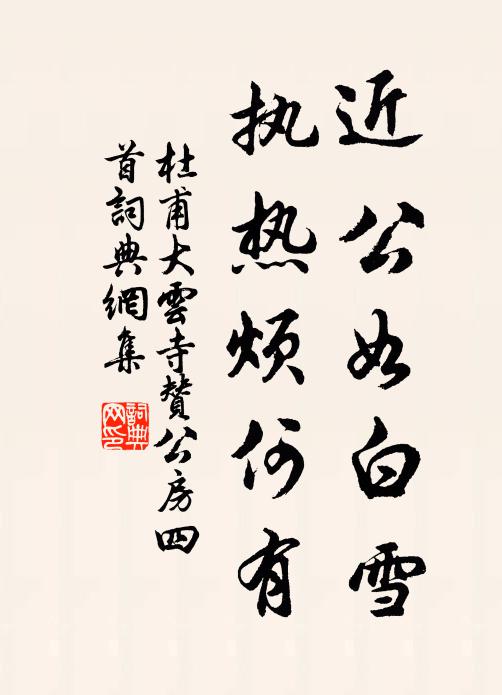 近公如白雪
执热烦何有
杜甫大雲寺赞公房四
首詞典網集
詞典网印